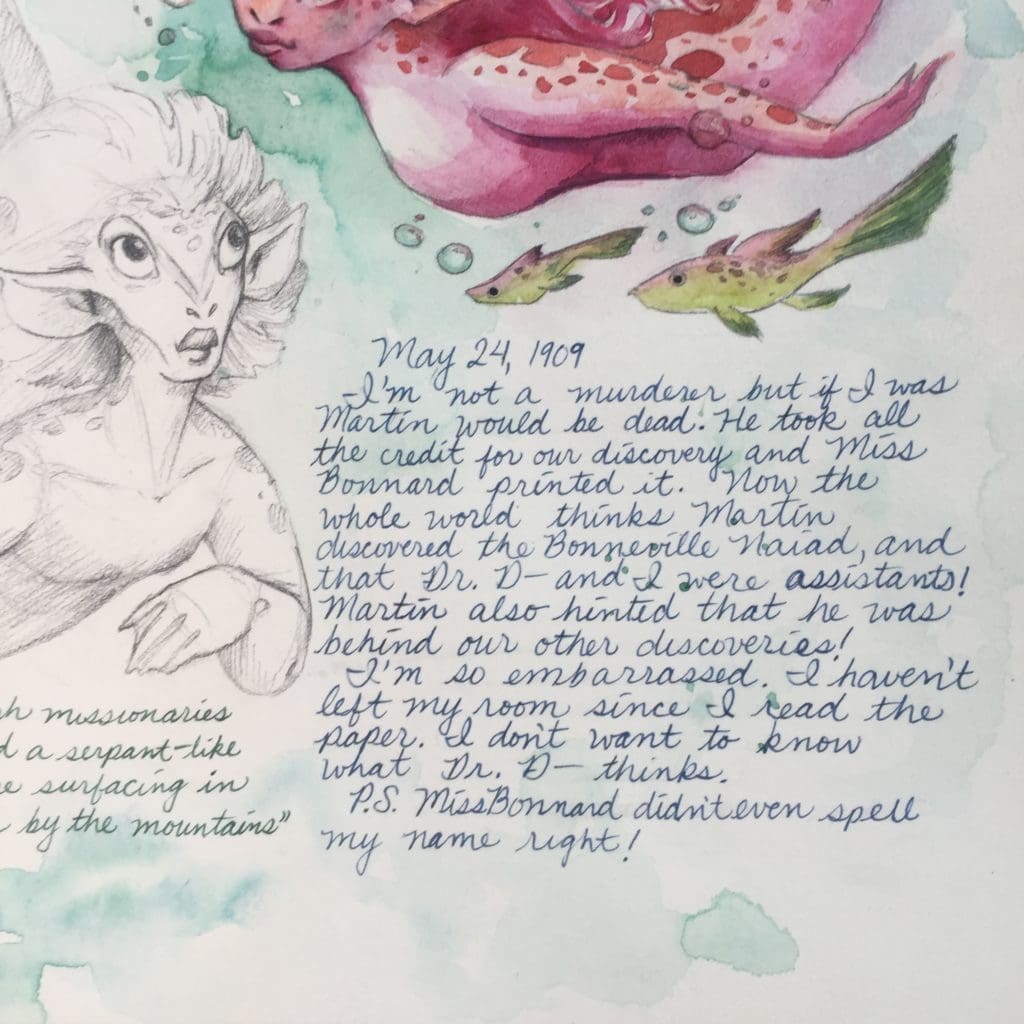 May 24, 1909
I'm not a murderer but if I was
Martin would be dead. He took all
the credit for our discovery and Miss
Bonnard printed it. Now the
whole world thinks Martin
discovered the Bonneville Naiad, and
that Dr. D— and I were assistants!
Martin also hinted that he was
behind our other discoveries!
I'm so embarrassed. I haven't
left my room since I read the
paper. I don't want to know
what Dr. D— thinks.
P.S. Miss Bonnard didn't even spell
my name right!
missionaries
a serpant-like
surfacing in
by the mountains"